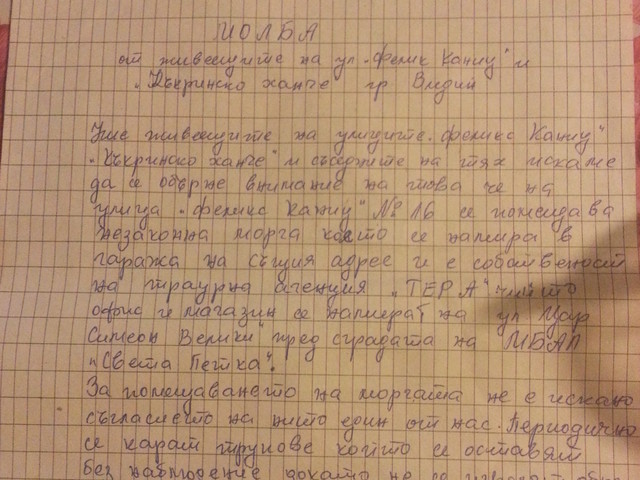 МОЛБА
от живеещите на ул. "Феликс Каниц" и
"Къкринско ханче" гр Видин
Ние живеещите на улиците "Феликс Каниц"
"Къкринско ханче" и съседните на тях искаме
да се обърне внимание на това че на
улица "Феликс Каниц" № 16 се помещава
незаконна морга която се намира в
гаража на същия адрес и е собственост
на траурна агенция "ТЕРА" чиито
офис и магазин се намират на ул Цар
Симеон Велики" пред сградата на МБАЛ
"Света Петка".
За помещаването на моргата не е искано
съгласието на нито един от нас. Периодично
се карат трупове които се оставят
без наблюдение докато не се